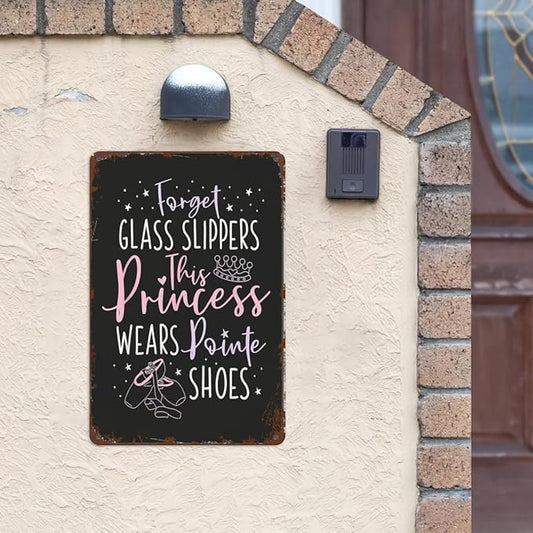 Forget
GLASS SLIPPERS
This
Princess
WEARS Pointe
SHOES